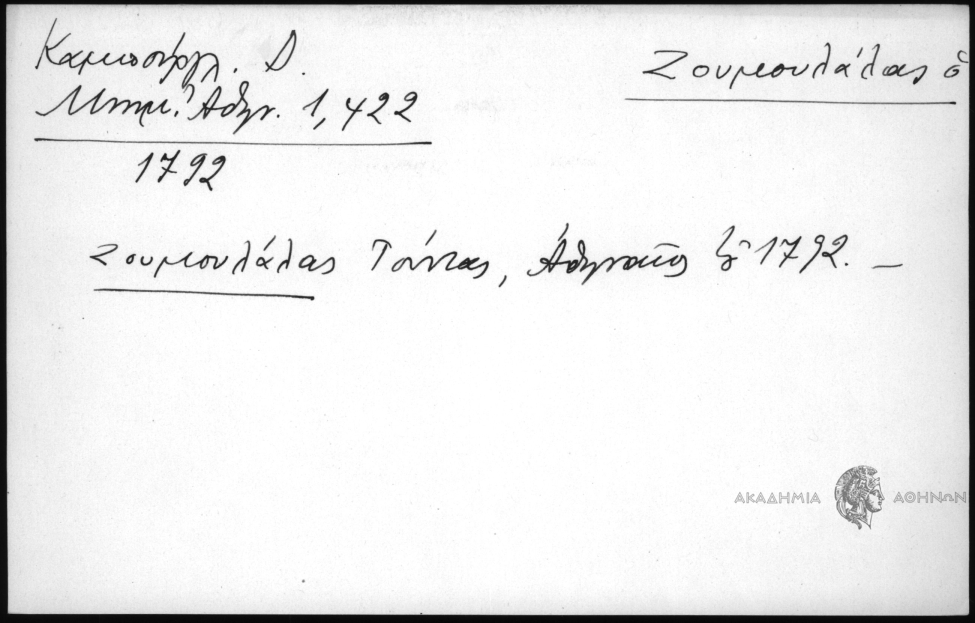 Καμπούργλ. Δ.
Μνημ. Ἀθην. 1,422
1792
Ζουμουλάλας ὁ
Ζουμουλάλας Τάντας, Ἀθηναῖος 1792. –
ΑΚΑΔΗΜΙΑ ΑΘΗΝΩΝ